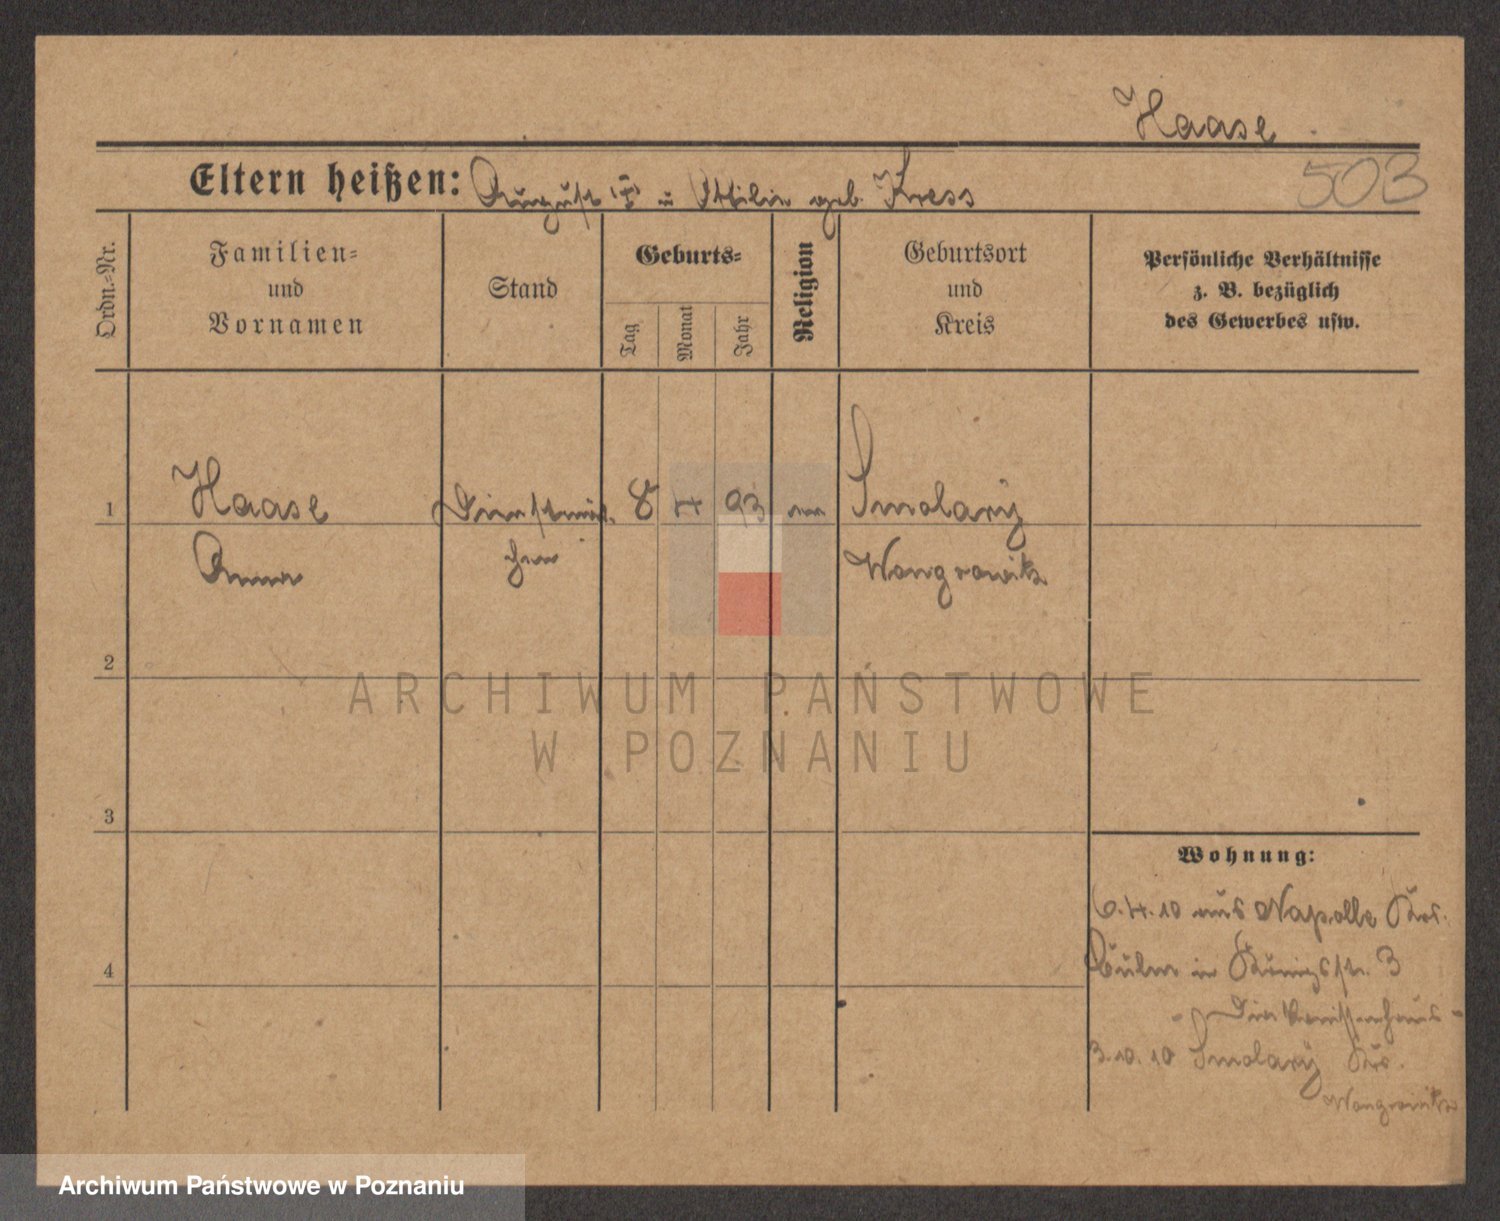 Haase
503
Eltern heißen: August u Ottilie geb. Kress
Ordn.-Nr.
Familien-
und
Vornamen
Stand
Geburts-
Tag
Monat
Jahr
Religion
Geburtsort
und
Kreis
Persönliche Verhältnisse
z. B. bezüglich
des Gewerbes usw.
1
Haase
Anna
Dienstmäd.
chen
8
4
93
ev
Smolary
Wongrowitz
2
3
4
Wohnung:
6.4.10 aus Napolle Krs.
Culm in Königsstr. 3
- Diakonissenhaus -
3.10.10 Smolary Krs.
Wongrowitz
ARCHIWUM PAŃSTWOWE
W POZNANIU
Archiwum Państwowe w Poznaniu